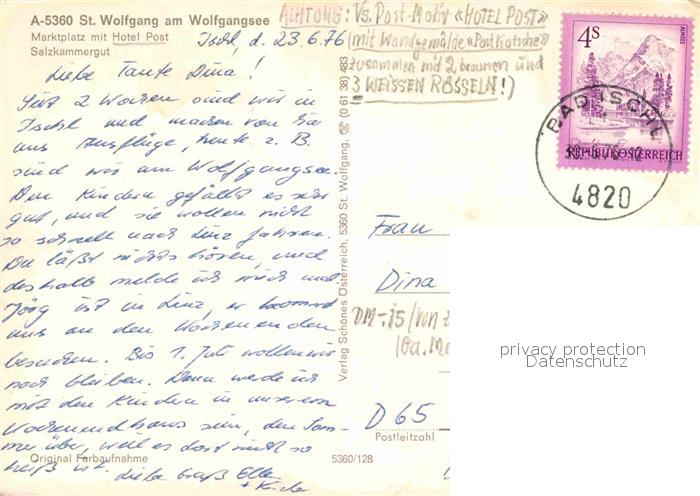 A-5360 St. Wolfgang am Wolfgangsee
Marktplatz mit Hotel Post
Salzkammergut
Ischl, d. 23.6.76
Liebe Tante Dina!
Seit 2 Wochen sind wir in
Ischl und machen von hier
aus Ausflüge, heute z. B.
sind wir am Wolfgangsee.
Den Kindern gefällt es sehr
gut, und sie wollen nicht
so schnell nach Linz fahren.
Du läßt nichts hören, und
deshalb melde ich mich mal.
Jörg ist in Linz, er kommt
uns an den Wochenenden
besuchen. Bis 1. Juli wollen wir
noch bleiben. Dann werde ich
mit den Kindern in unserem
Wochenendhaus sein, den Som-
mer über, weil es dort nicht so
heiß ist. Liebe Grüße Ellen
Original Farbaufnahme
5360/128
Verlag Schönes Österreich, 5360 St. Wolfgang, ☏ (0 61 38) 483
ACHTUNG: Vs. Post-Motiv «HOTEL POST»
(mit Wandgemälde «Postkutsche»
zusammen mit 2 braunen und
3 WEISSEN RÖSSELN!)
4S
ALMSEE
REPUBLIK ÖSTERREICH
BAD ISCHL
4820
Frau
Dina
DM -.75/(von
D 65
Postleitzahl
privacy protection
Datenschutz